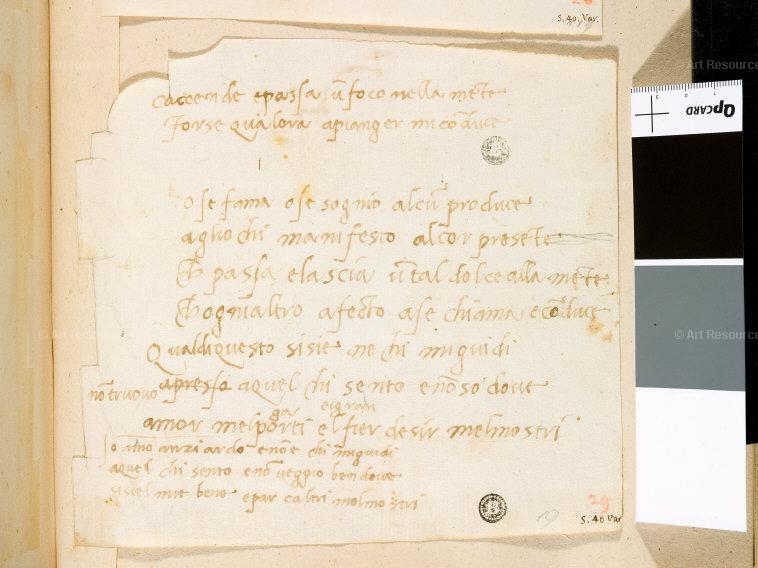 S. 40. Var.
cacoende e passa ū foco nella mēte
forse qualora apianger micōduce
o se fama o se sognio alcū produce
agliochi manifesto alcor presēte
passa e lascia ū tal dolce alla mēte
ognialtro afecto a se chiama e cōduce
Qualdiquesto sisie ne chi miguidi
nō truovo apresso aquel chi sento e nōso dove
gar e i gran
amor melporti el fier desir melmostri
ardo e nōe chi miguidi
aquel chi sento e nō veggio ben dove
sisie l mie bene e par caltri melmostri
29
19
S. 40 Var
QPCARD
© Art Resource
© Art Resource
© Art Resource